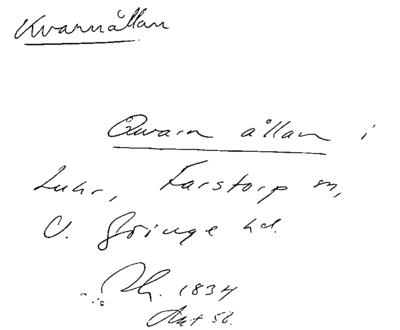 Kvarnållan
Qwarn ållan i
Luhr, Farstorp sn,
V. Göinge hd.
1834
Akt 58.